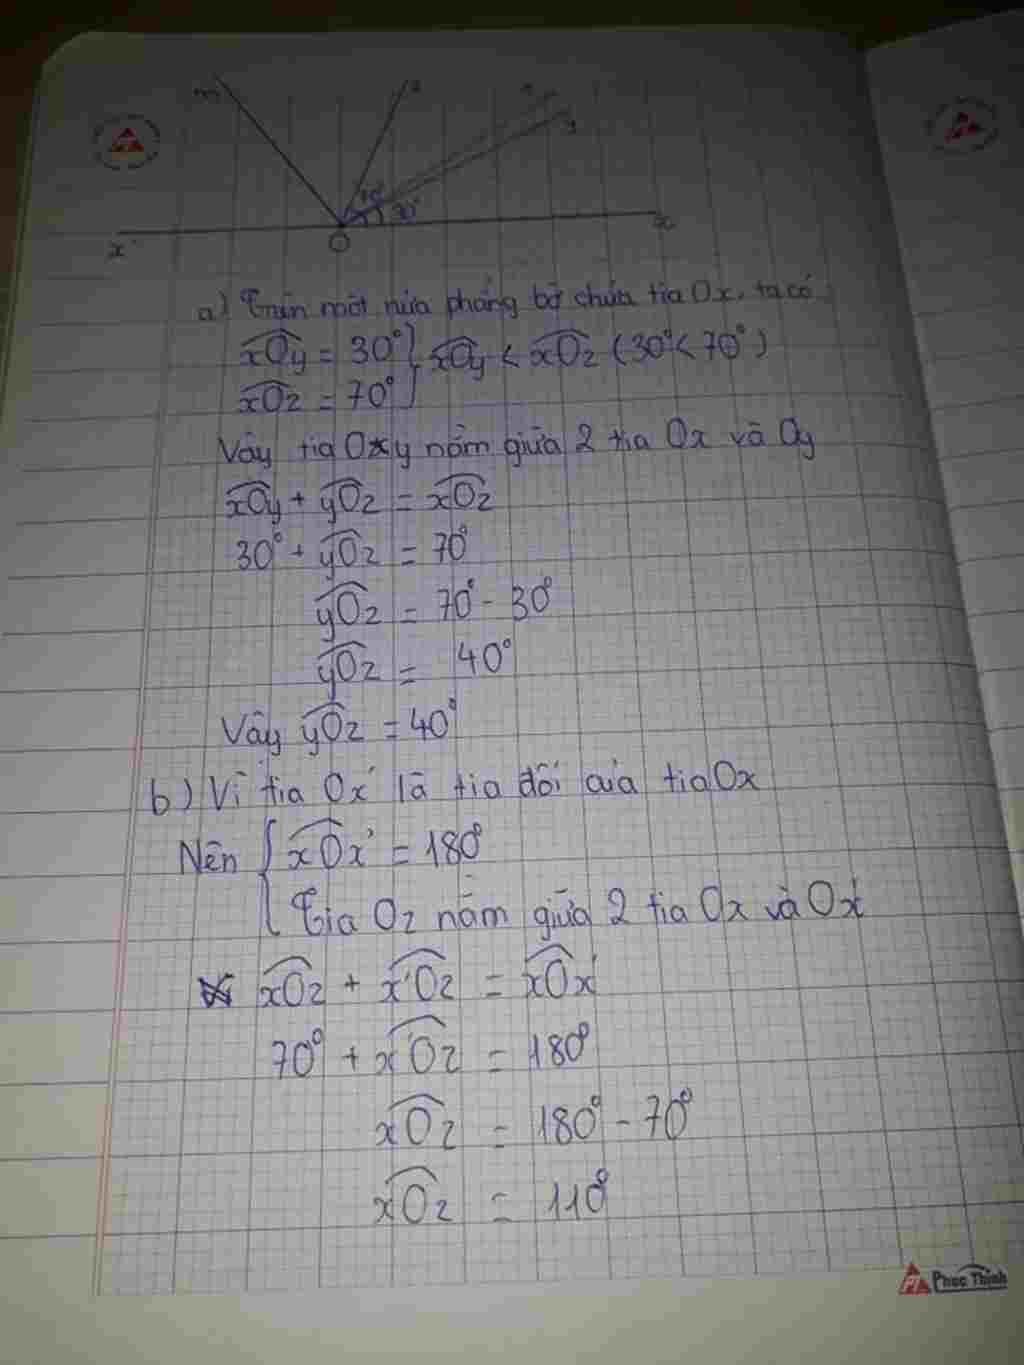 m
z
n
y
70°
30°
x'
O
x
a) Trên một nửa phẳng bờ chứa tia Ox, ta có
xOy = 30° } xOy < xOz (30° < 70°)
xOz = 70°
Vậy tia Oy nằm giữa 2 tia Ox và Oy
xOy + yOz = xOz
30° + yOz = 70°
yOz = 70° - 30°
yOz = 40°
Vậy yOz = 40°
b) Vì tia Ox' là tia đối của tia Ox
Nên { xOx' = 180°
Tia Oz nằm giữa 2 tia Ox và Ox'
xOz + x'Oz = xOx'
70° + x'Oz = 180°
x'Oz = 180° - 70°
x'Oz = 110°
PT Phúc Thịnh